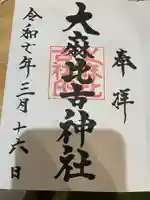 奉拝
大麻比古神社
令和七年三月十六日